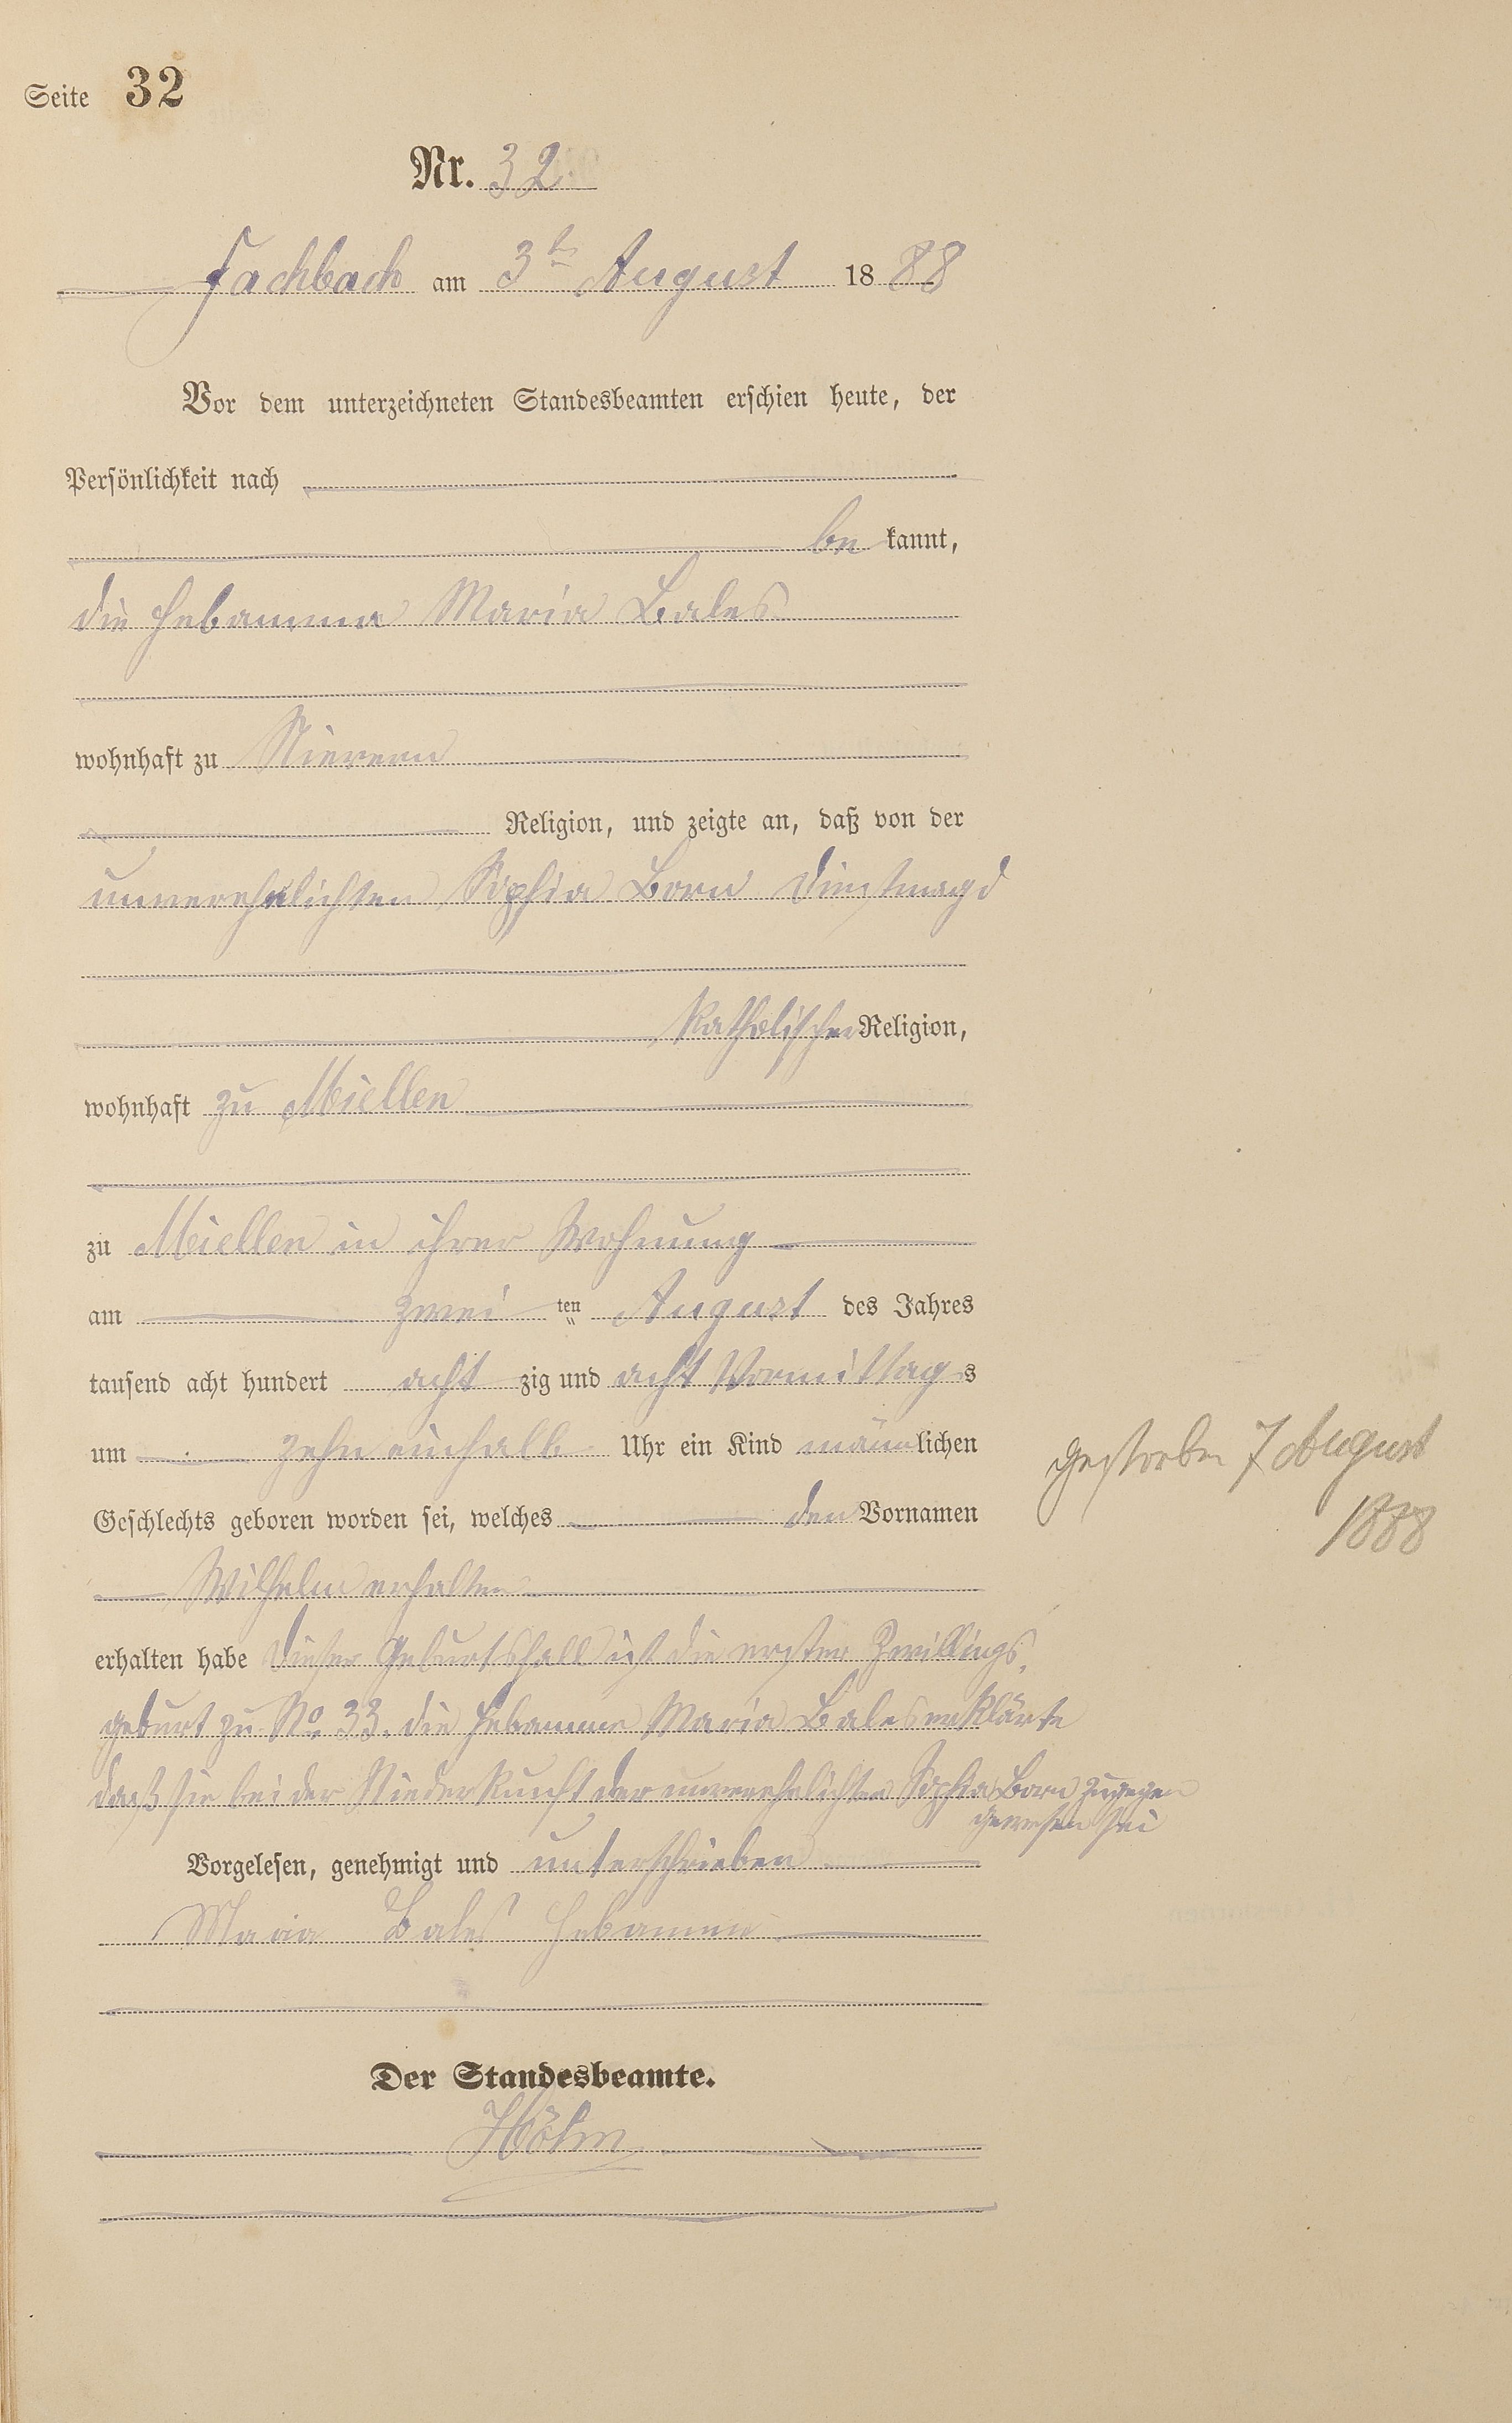 Seite 32
Nr. 32.
Fachbach am 3ten August 1888
Vor dem unterzeichneten Standesbeamten erschien heute, der
Persönlichkeit nach
be kannt,
die Hebamme Maria Bales
wohnhaft zu Nievern
Religion, und zeigte an, daß von der
unverehelichten Sophia Born Dienstmagd
katholischer Religion,
wohnhaft zu Miellen
zu Miellen in ihrer Wohnung
am zwei ten August des Jahres
tausend acht hundert acht zig und acht Vormittags
um zehn einhalb Uhr ein Kind männlichen
Geschlechts geboren worden sei, welches den Vornamen
Wilhelm erhalten
erhalten habe Dieser Geburtsfall ist die erster Zwillings
geburt zu No 33. die Hebamme Maria Bales erklärte
daß sie bei der Niederkunft der unverehelichten Sophia Born zugegen
gewesen sei
Vorgelesen, genehmigt und unterschrieben
Maria Bales Hebamme
Der Standesbeamte.
gestorben 7 August
1888